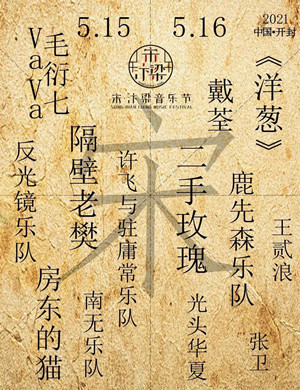 5.15
5.16
2021.
中国·开封
宋·汴梁音乐节
SONG·BIAN LIANG MUSIC FESTIVAL
宋
《洋葱》
王贰浪
张卫
戴荃
鹿先森乐队
二手玫瑰
光头华夏
许飞与驻庸常乐队
隔壁老樊
南无乐队
毛衍七
VaVa
房东的猫
反光镜乐队